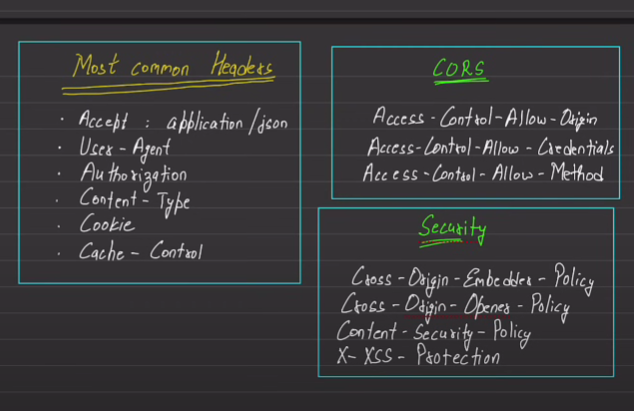 Most common Headers
· Accept : application/json
· User - Agent
· Authorization
· Content - Type
· Cookie
· Cache - Control
CORS
Access - Control - Allow - Origin
Access - Control - Allow - Credentials
Access - Control - Allow - Method
Security
Cross - Origin - Embedder - Policy
Cross - Origin - Opener - Policy
Content - Security - Policy
X - XSS - Protection